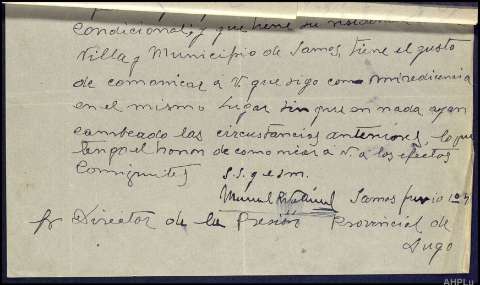 condicional, y que tiene su residencia
Villa y Municipio de Samos, tiene el gusto
de comonicar a V. que sigo con mi rediciencia
en el mismo lugar sin que en nada ayan
cambeado las circustancias anteriores, lo que
tengo el honor de comonicar a V. a los efectos
Consiguintes s.s.q.e.s.m.
Manuel Samos junio 10
Sr Director de la Presión Provincial de
Lugo
AHPLu